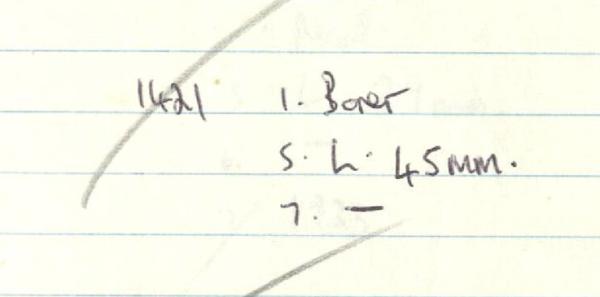 1421 1. Boar
5. L. 45mm.
7. —